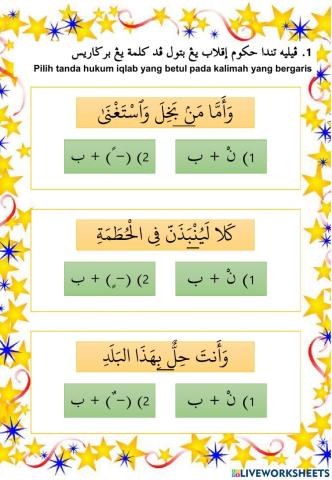 1. ڤيليه تندا حكوم إقلاب يڠ بتول ڤد كلمة يڠ برݢاريس
Pilih tanda hukum iqlab yang betul pada kalimah yang bergaris
وَأَمَّا مَنۢ بَخِلَ وَٱسْتَغْنَىٰ
1) نْ + ب
2) (–ً) + ب
كَلا لَيُنْبَذَنَّ فِى الْحُطَمَةِ
1) نْ + ب
2) (–ٍ) + ب
وَأَنتَ حِلٌّ بِهَذَا البَلَدِ
1) نْ + ب
2) (–ٌ) + ب
LIVEWORKSHEETS